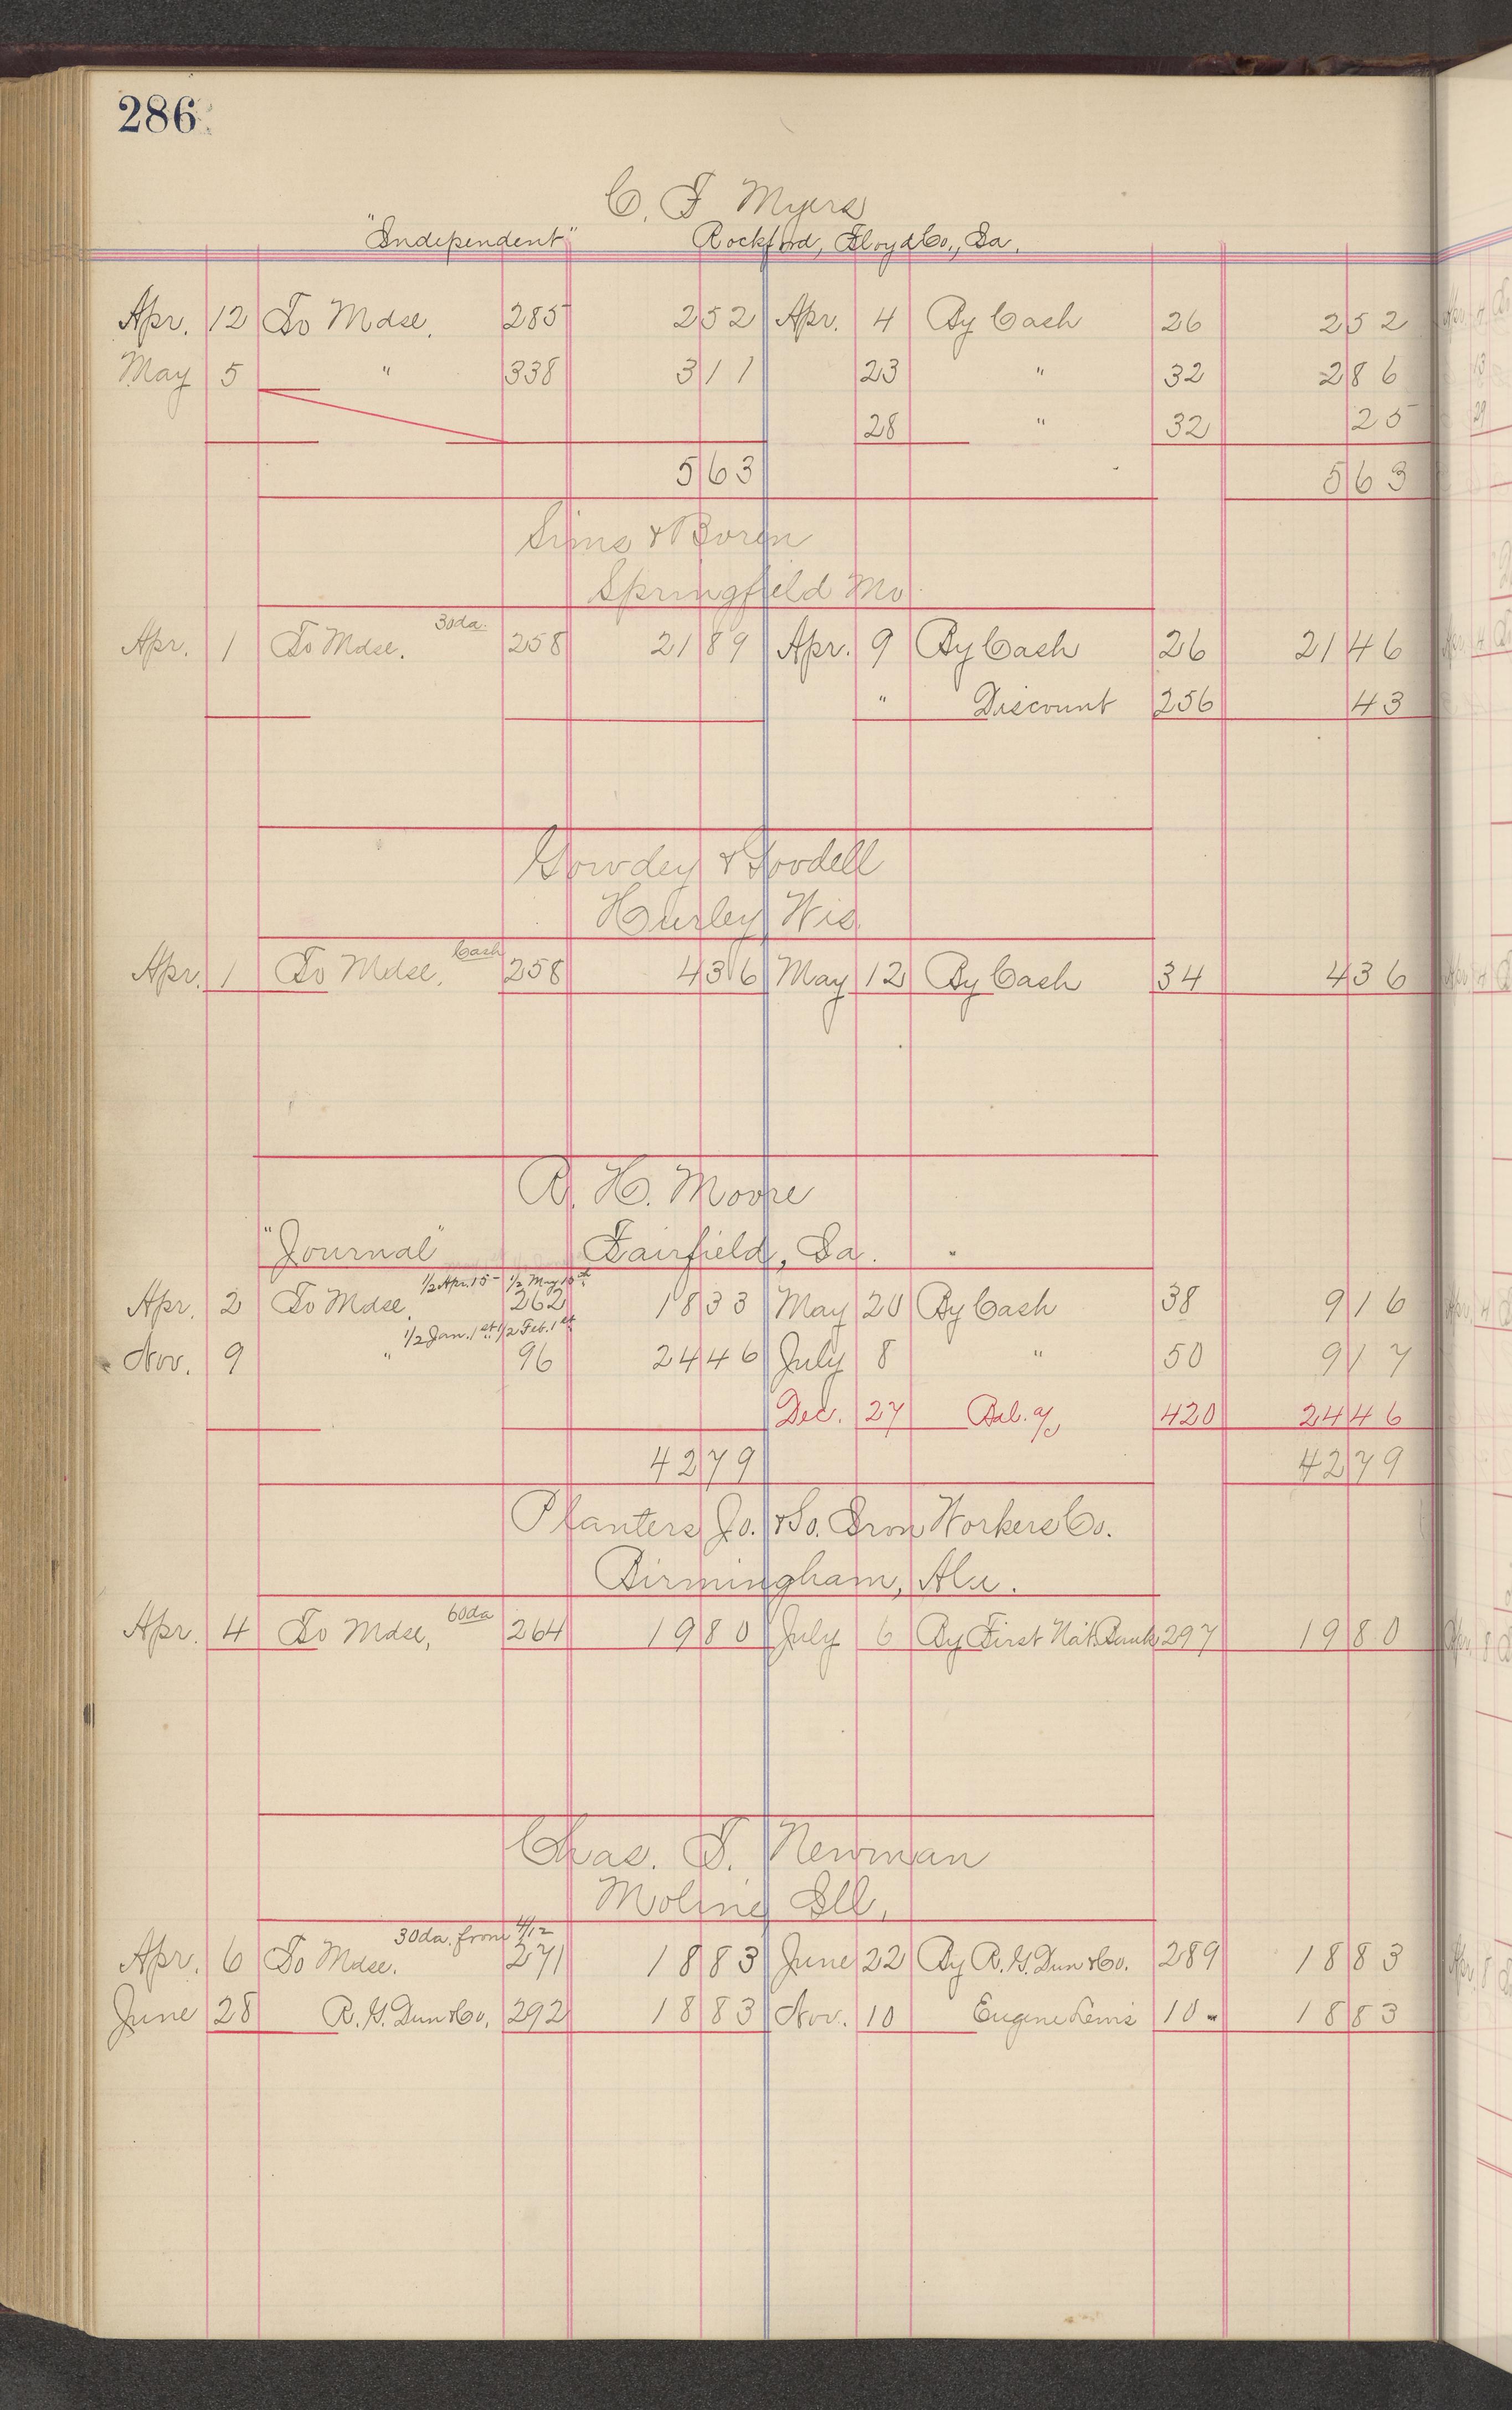 286
C. F Myers
"Independent" Rockford, Floyd Co., Ia.
Apr. 12 To Mdse. 285 2 52 Apr. 4 By Cash 26 2 52
May 5 " 338 3 11 23 " 32 2 86
28 " 32 25
5 63 5 63
Sims & Boren
Springfield Mo.
30da.
Apr. 1 To Mdse. 258 21 89 Apr. 9 By Cash 26 21 46
" Discount 256 43
Gowdey & Goodell
Hurley Wis.
Cash
Apr. 1 To Mdse. 258 4 36 May 12 By Cash 34 4 36
R. H. Moore
"Journal" Fairfield, Ia.
1/2 Apr. 15 - 1/2 May 15th
Apr. 2 To Mdse. 262 18 33 May 20 By Cash 38 9 16
1/2 Jan. 1st 1/2 Feb. 1st
Nov. 9 " 96 24 46 July 8 " 50 9 17
Dec. 27 Bal. a/c 420 24 46
42 79 42 79
Planters Jo. & So. Iron Workers Co.
Birmingham, Ala.
60da
Apr. 4 To Mdse, 264 19 80 July 6 By First Nat. Bank 297 19 80
Chas. T. Newman
Moline Ill.
30da. from 4/12
Apr. 6 To Mdse. 271 18 83 June 22 By R. G. Dun & Co. 289 18 83
June 28 R. G. Dun & Co. 292 18 83 Nov. 10 Eugene Lewis 10 18 83